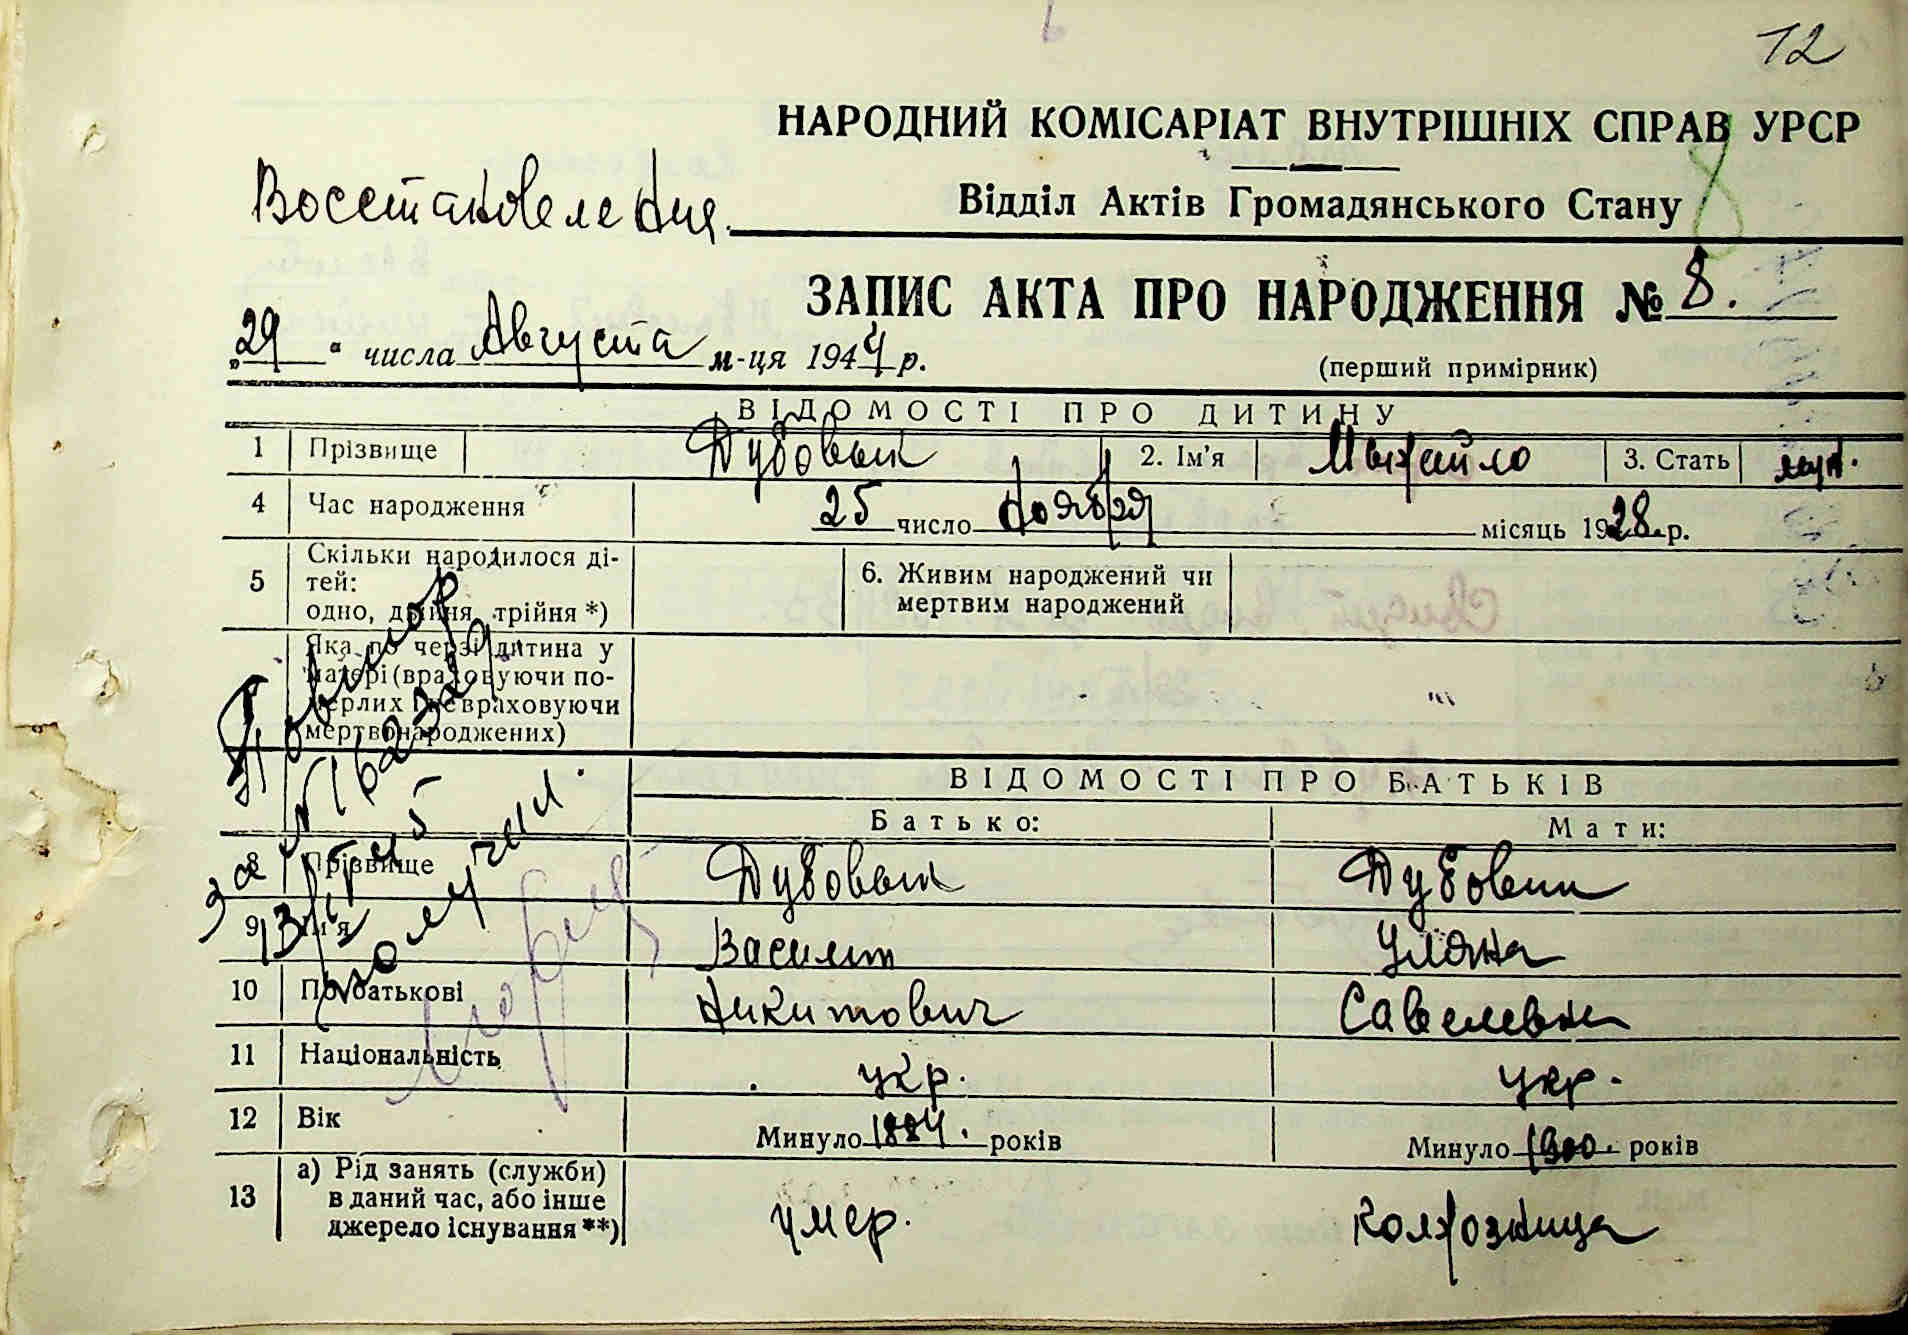 12
НАРОДНИЙ КОМІСАРІАТ ВНУТРІШНІХ СПРАВ УРСР
Восстановления.
Відділ Актів Громадянського Стану
8
ЗАПИС АКТА ПРО НАРОДЖЕННЯ № 8.
„29“ числа Августа м-ця 1944 р.
(перший примірник)
ВІДОМОСТІ ПРО ДИТИНУ
1 Прізвище Дубовык 2. Ім'я Михайло 3. Стать муж.
4 Час народження 25 число ноября місяць 1928 р.
5 Скільки народилося ді-
тей:
одно, двійня, трійня *)
6. Живим народжений чи
мертвим народжений
Яка по черзі дитина у
матері (враховуючи по-
мерлих і невраховуючи
мертвонароджених)
Повтор
за №
ВІДОМОСТІ ПРО БАТЬКІВ
Батько: Мати:
8 Прізвище Дубовык Дубовик
9 Ім'я Василь Уляна
10 По батькові Никитович Савелевна
11 Національність укр. укр.
12 Вік Минуло 1884. років Минуло 1900. років
13 а) Рід занять (служби)
в даний час, або інше
джерело існування **)
умер. колхозница